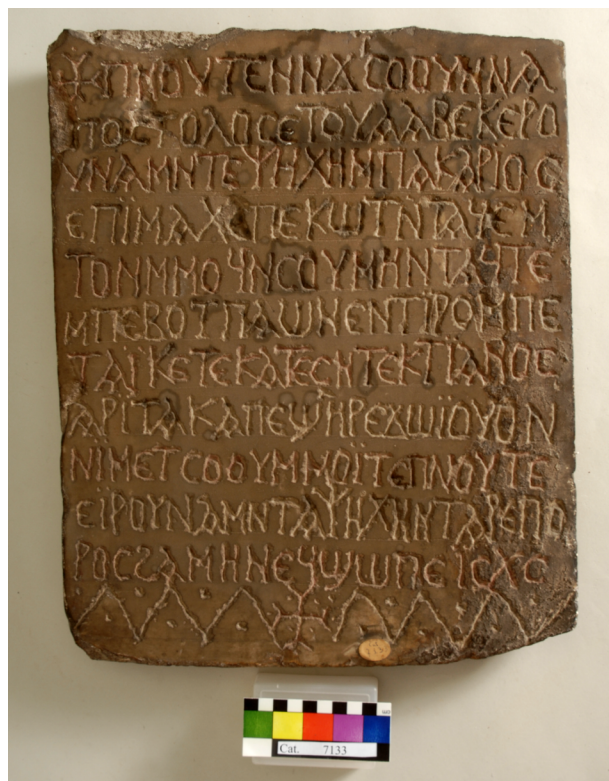 ⳁⲡⲛⲟⲩⲧⲉⲛⲛⲁϭⲟⲟⲩⲛⲛⲁ
ⲡⲟⲥⲧⲟⲗⲟⲥⲉⲧⲟⲩⲁⲁⲃⲉⲕⲉⲣⲟ
ⲩⲛⲁⲙⲛⲧⲉⲯⲏⲭⲏⲙⲡⲁⲕⲁⲣⲓⲟⲥ
ⲉⲡⲓⲙⲁⲭⲉⲡⲉⲕⲱⲧⲛⲧⲁϥⲉⲙ
ⲧⲟⲛⲙⲙⲟϥⲛⲥⲟⲩⲙⲏⲛⲧⲁϥⲧⲉ
ⲙⲡⲉⲃⲟⲧⲡⲁⲱⲛⲉⲛϯⲣⲟⲙⲡⲉ
ⲧⲁⲓⲕⲉⲧⲉⲕⲁⲧⲉⲥⲛⲧⲉⲕⲧⲓⲁⲛⲟⲥ
ⲁⲣⲓⲧⲁⲕⲁⲡⲉⲡϣⲏⲣⲉϫⲱⲓⲟⲩⲟⲛ
ⲛⲓⲙⲉⲧⲥⲟⲟⲩⲙⲙⲟⲓⲧⲉⲡⲛⲟⲩⲧⲉ
ⲉⲓⲣⲟⲩⲛⲁⲙⲛⲧⲁⲯⲏⲭⲏⲛⲧⲁⲣⲉⲡϭ
ⲣⲟⲥϩⲁⲙⲏⲛⲉϥϣⲱⲡⲉⲓⲥⲭⲥ
Cat. 7133